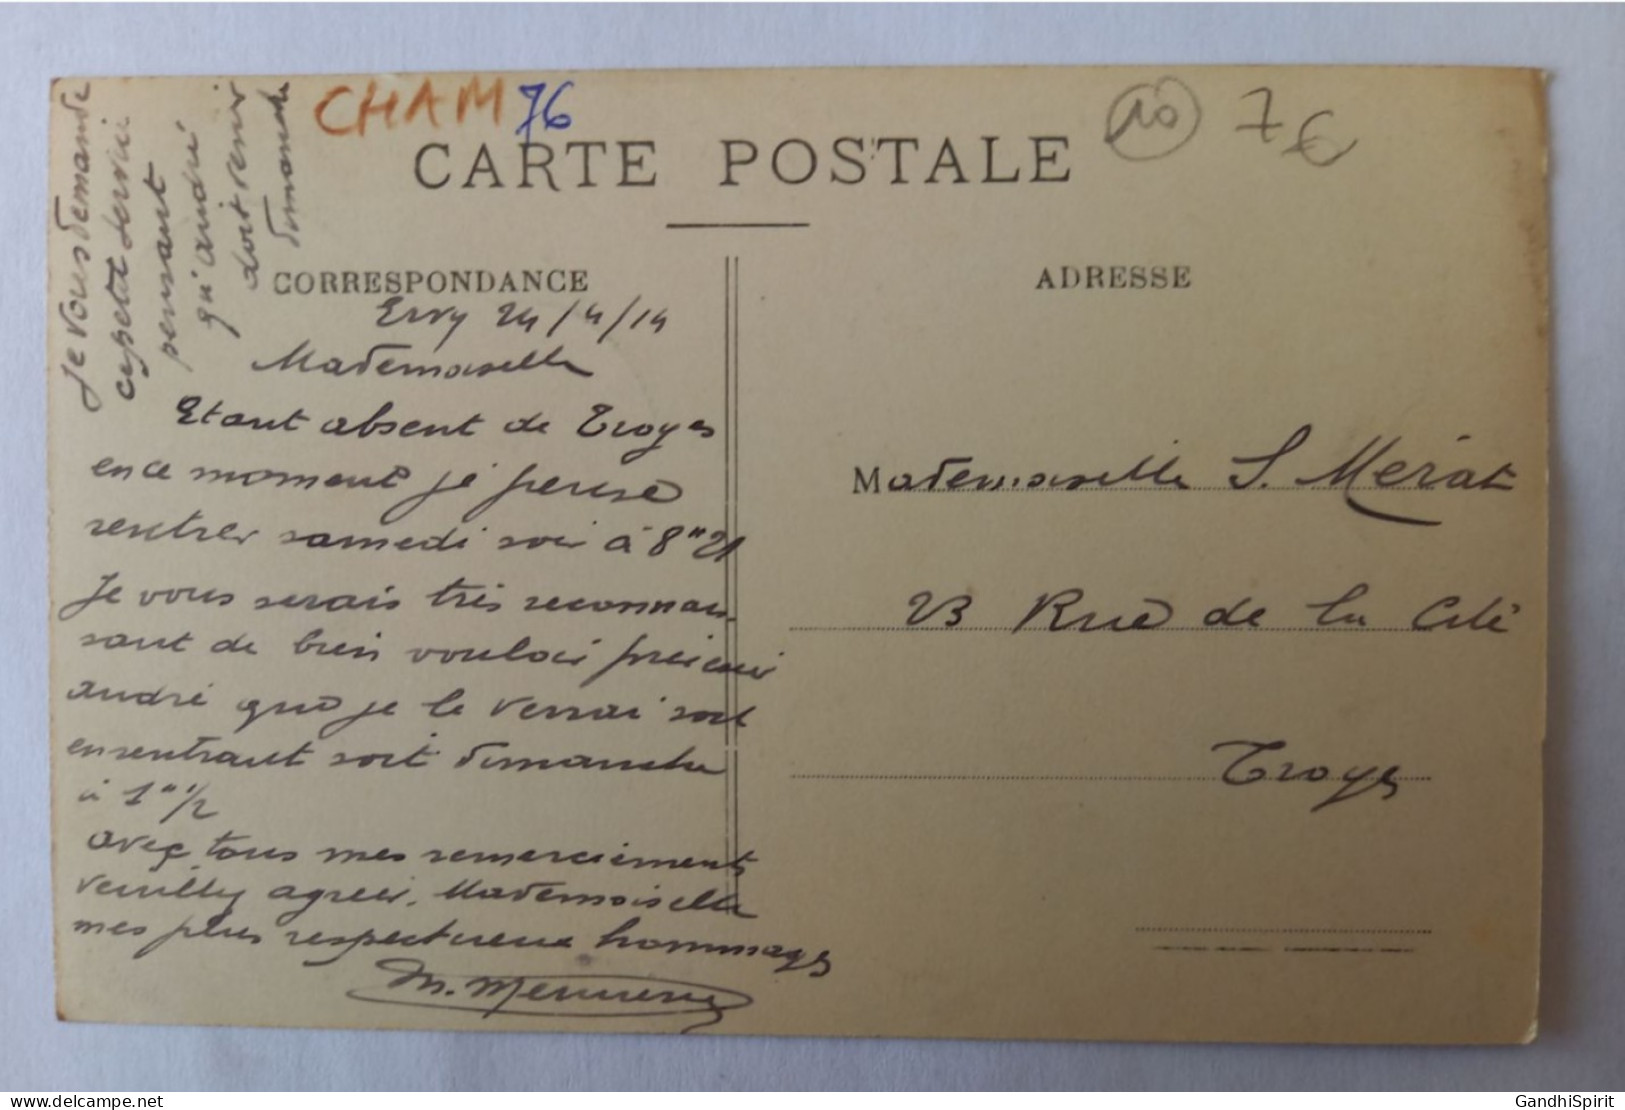 CHAM 76
10 7€
CARTE POSTALE
CORRESPONDANCE
ADRESSE
Je vous demande
ce petit service
pensant
qu'andré
doit venir
dimanche
Ervy 24/4/14
Mademoiselle
Etant absent de Troyes
en ce moment je pense
rentrer samedi soir à 8h21
Je vous serais très reconnais
sant de bien vouloir prévenir
andré que je le verrai soit
en rentrant soit dimanche
à 1h 1/2
avec tous mes remerciements
veuillez agréer, Mademoiselle
mes plus respectueux hommages
Mademoiselle S. Mérat
23 Rue de la Cité
Troyes
GandhiSpirit
delcampe.net